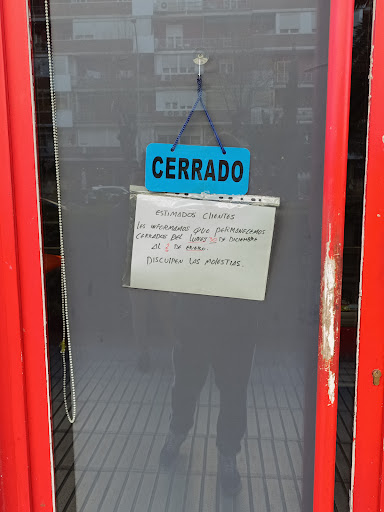 CERRADO
ESTIMADOS CLIENTES
LES INFORMAMOS QUE PERMANECEMOS
CERRADOS DEL LUNES 30 DE DICIEMBRE
AL 2 DE ENERO.
DISCULPEN LAS MOLESTIAS.